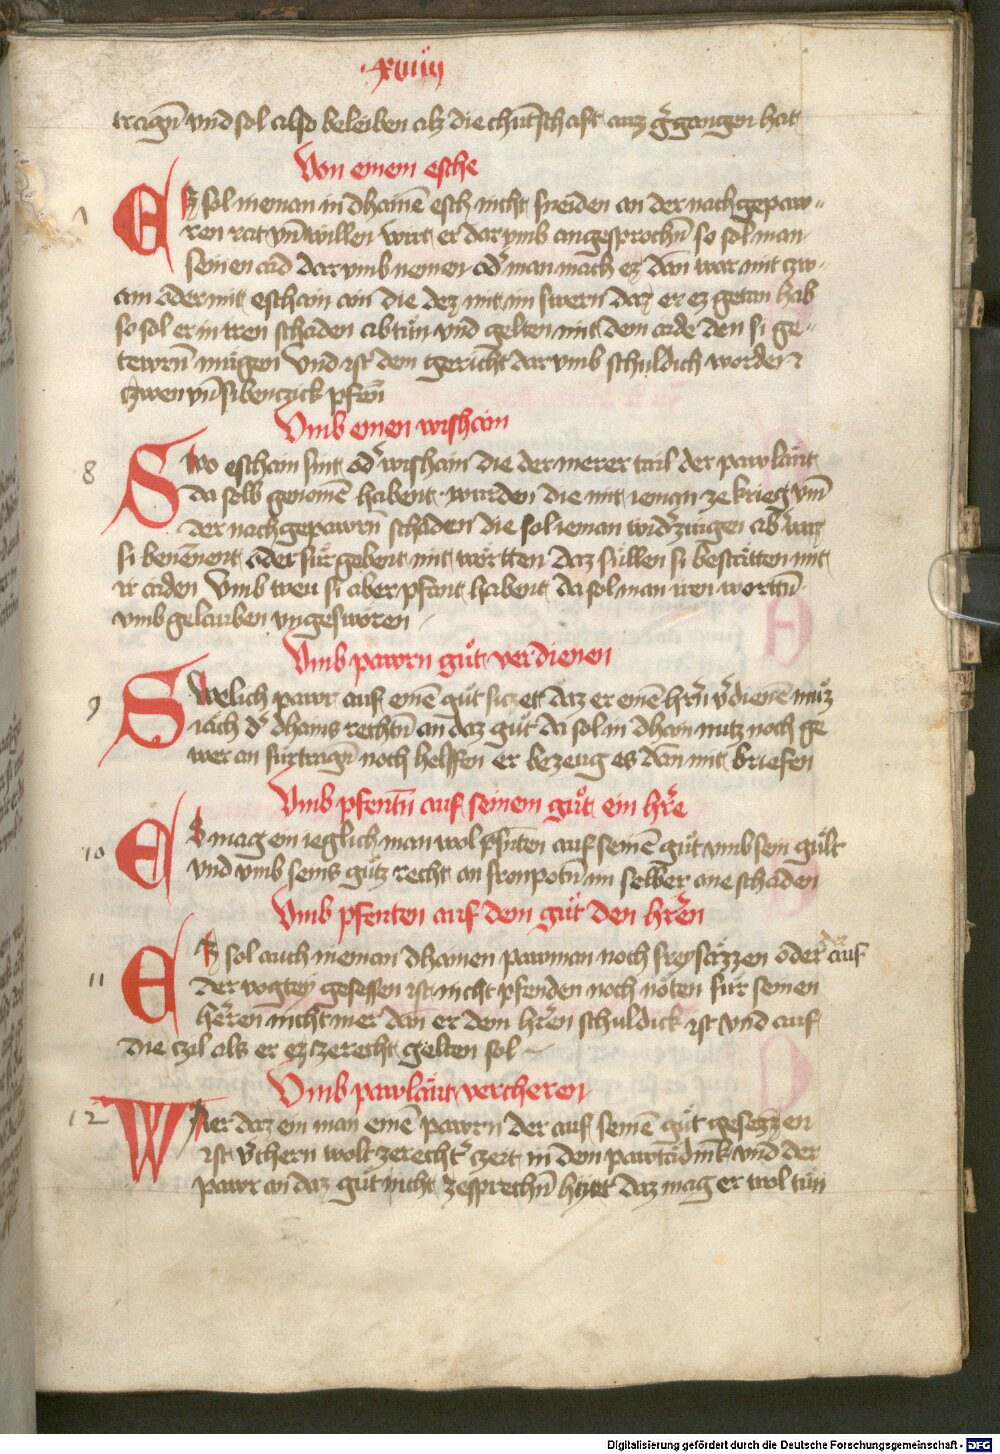 .xviiij
tragn̄ vnd sol also beleiben alz die chūtschaft auz gͤgangen hat
Von einem esche
7 Ez sol nieman in dhainē esch nicht sneiden an der nachgepaw„
ren rat vn̄ willen wirt er dar vmb angesprochn̄ so sol man
seinen aid dar vmb nemen od' man mach ez dan war mit czw„
ain oder mit eschain ain die dez mit im swern daz er ez getan hab
so sol er in iren schaden abtůn vnd gelten mit dem aide den si ge„
tewrn mügen Vnd ist dem gericht dar vmb schuldich worden
czwen vn̄ sibenczick pfen̄
Vmb einen wishaim
8 Swo eschain sint od' wishain die der merer tail der pawläut
da selb genomē habent. wurden die mit ieman ze krieg vm̄
der nachgepawrn̄ schaden die sol ieman wid'zwigen ab' waz
si benēnent oder für gebent mit wörtten daz süllen si bestätten mit
ir aiden Vmb weu si aber pfant habent da sol man iren wortn̄
vmb gelauben vngesworen
Vmb pawrn gůt verdienen
9 Swelich pawr auf einē gůt siczet daz er einē hrn̄ v'dienē můz
iäch d' dhains rechtn̄ an daz gůt da sol in dhain nutz noch ge
wer an fürtragn̄ noch helffen er bezeug es dan mit briefen
Vmb pfentn̄ auf seinem gůt ein hr'e
10 Ez mag ein ieglich man wol pfentē auf seinē gůt vmb sein gült
vnd vmb seins gůtz recht an fronpotn̄ im selber ane schaden
Vmb pfenten auf dem gůt den hr'en
11 Ez sol auch nieman dhainen pawman noch freysäzzen oder der auf
der vogtey gesessen ist nicht pfenden noch nöten für seinen
herren nicht mer dan er dem hr'en schuldick ist vnd auf
die czil als er ez czerecht gelten sol
Vmb pawläut vercheren
12 Wer daz ein man einē pawrn der auf seinē gůt gesezzen
ist v'chern wolt zerecht' czeit in dem pawtādink vnd der
pawr an daz gůt nicht zesprechn̄ hyet daz mag er wol tůn
Digitalisierung gefördert durch die Deutsche Forschungsgemeinschaft - DFG